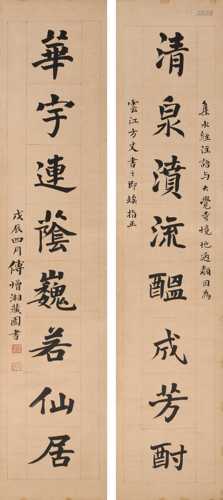 清泉濆流醞成芳酎
集水經注語与大覺寺境地適類因為
雲江方丈書之即矦指正
華宇連蔭巍若仙居
戊辰四月傅增湘藏園書